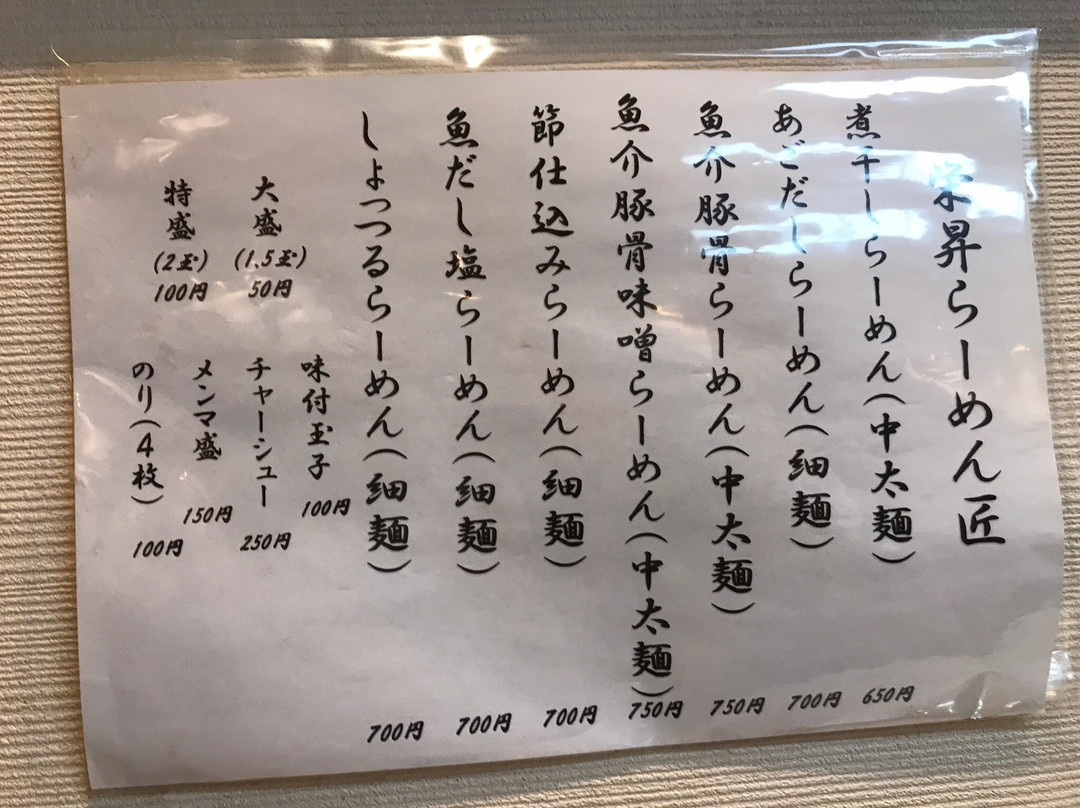 栄昇らーめん匠
煮干しらーめん(中太麺) 650円
あごだしらーめん(細麺) 700円
魚介豚骨らーめん(中太麺) 750円
魚介豚骨味噌らーめん(中太麺) 750円
節仕込みらーめん(細麺) 700円
魚だし塩らーめん(細麺) 700円
しょっつるらーめん(細麺) 700円
大盛(1.5玉) 50円
特盛(2玉) 100円
味付玉子 100円
チャーシュー 250円
メンマ盛 150円
のり(4枚) 100円